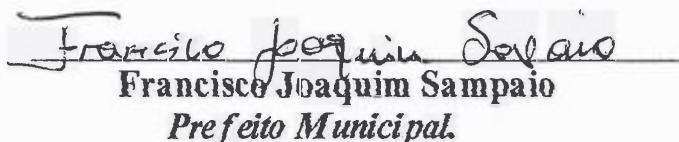 Francisco Joaquim Sampaio
Francisco Joaquim Sampaio
Prefeito Municipal.